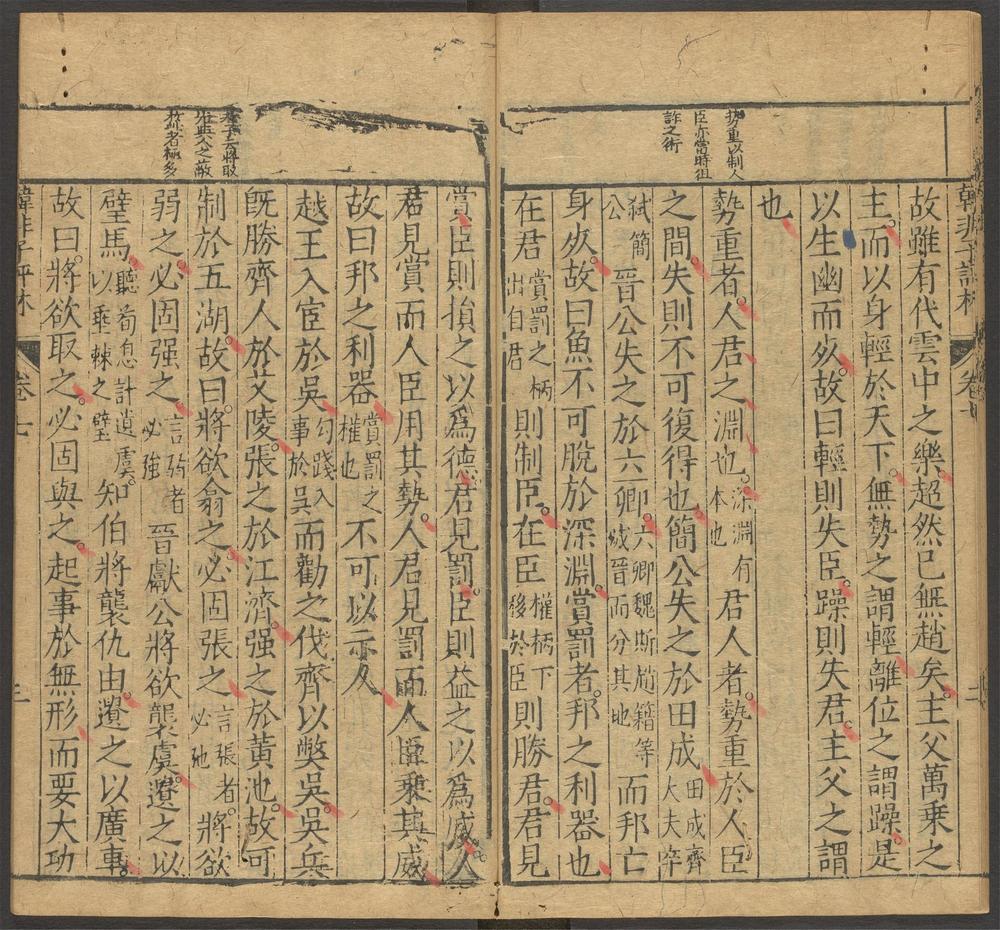 韓非子評林 卷七 二
勢重以制人
臣亦當時徂
詐之術
故雖有代雲中之樂超然已無趙矣主父萬乘之
主而以身輕於天下無勢之謂輕離位之謂躁是
以生幽而死故曰輕則失臣躁則失君主父之謂
也
勢重者人君之淵也深淵有本也君人者勢重於人臣
之間失則不可復得也簡公失之於田成田成齊大夫弒
弒簡公晉公失之於六卿六卿魏斯趙籍等滅晉而分其地而邦亡
身死故曰魚不可脫於深淵賞罰者邦之利器也
在君賞罰之柄出自君則制臣在臣權柄下移於臣則勝君君見
賞臣則損之以為德君見罰臣則益之以為威人
君見賞而人臣用其勢人君見罰而人臣乘其威
故曰邦之利器賞罰之權也不可以示人
越王入宦於吳勾踐入事於吳而勸之伐齊以弊吳吳兵
既勝齊人於艾陵張之於江濟强之於黃池故可
制於五湖故曰將欲翕之必固張之言張者必弛將欲
弱之必固强之言弱者必強晉獻公將欲襲虞遺之以
璧馬聽荀息計遺虞以垂棘之璧知伯將襲仇由遺之以廣車
故曰將欲取之必固與之起事於無形而要大功
老子云將取
必與人之敵
敗者極多
韓非子評林 卷七 三